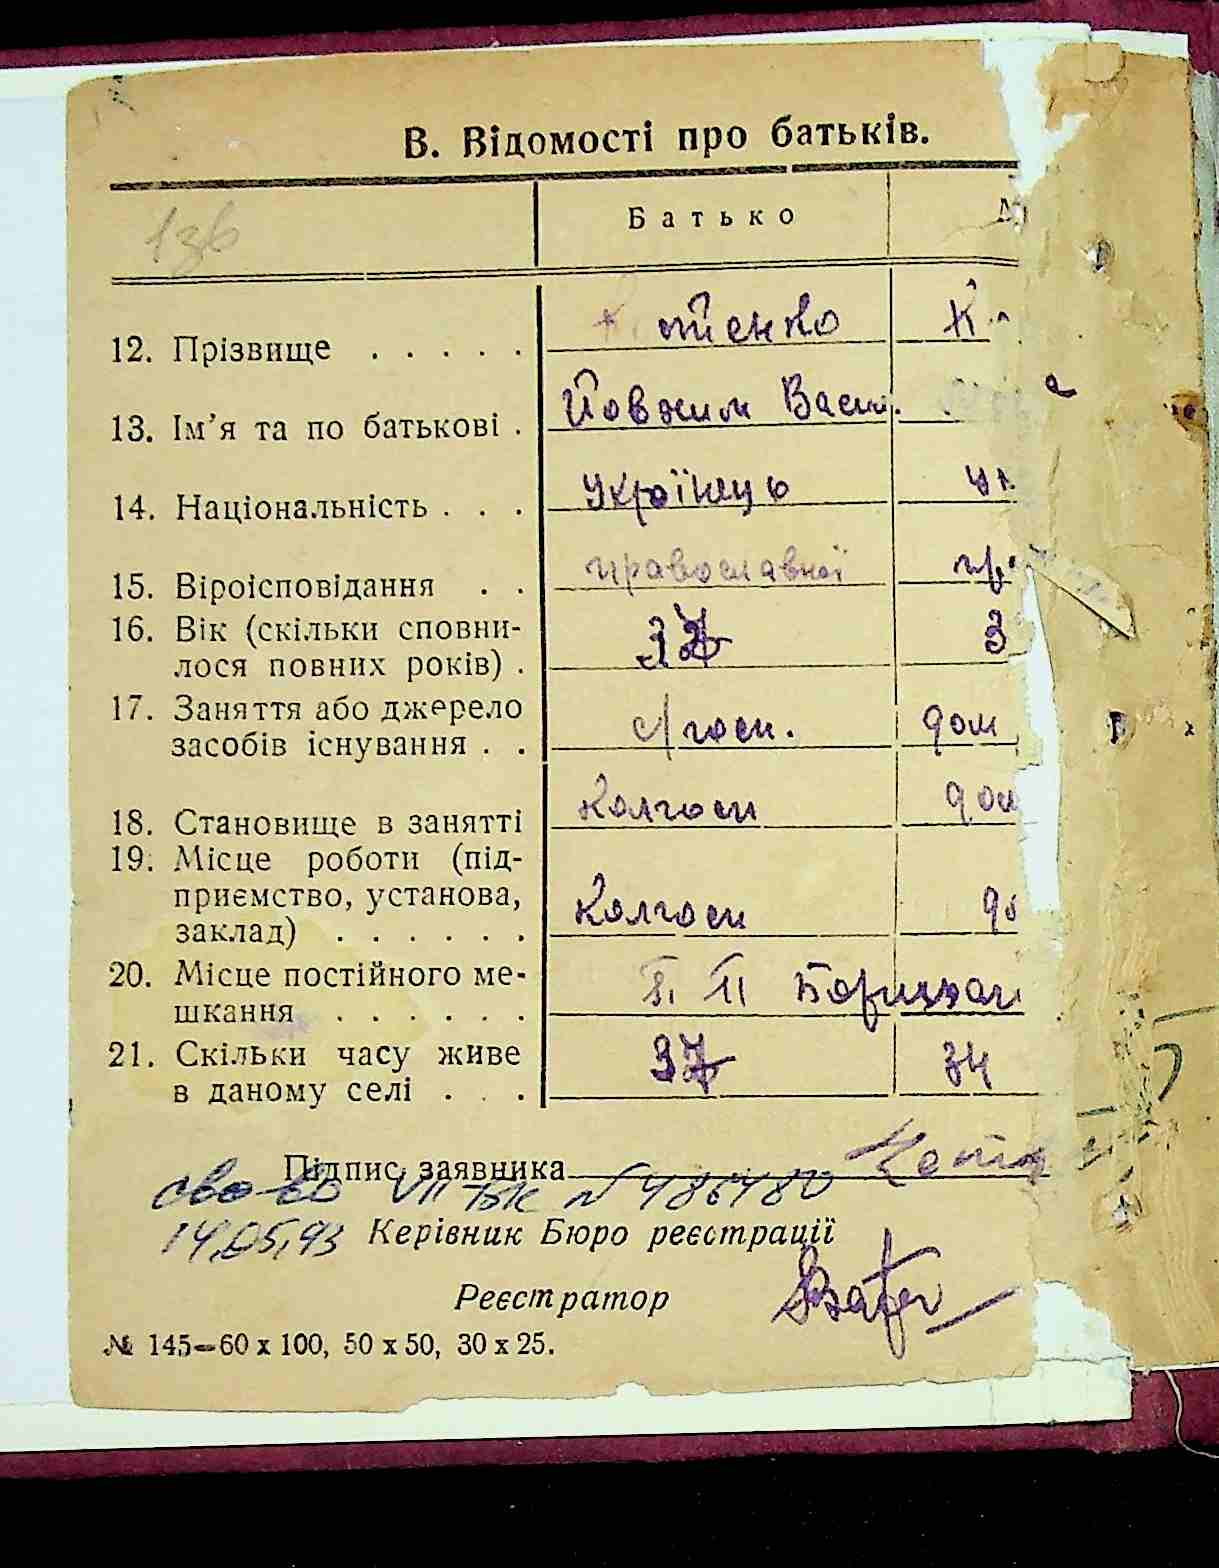 В. Відомості про батьків.
Батько
12. Прізвище . . . . . отченко К
13. Ім’я та по батькові . Йовхим Васил.
14. Національність . . . Українець ук
15. Віроісповідання . . православної пр
16. Вік (скільки сповни-
лося повних років) . 37 3
17. Заняття або джерело
засобів існування . . с/госп. дом
18. Становище в занятті колгосп дом
19. Місце роботи (під-
приємство, установа,
заклад) . . . . . . колгосп до
20. Місце постійного ме-
шкання . . . . . .
21. Скільки часу живе
в даному селі . . . 37 34
Підпис заявника
N 486480
14,05,93 Керівник Бюро реєстрації
Реєстратор
№ 145—60 x 100, 50 x 50, 30 x 25.